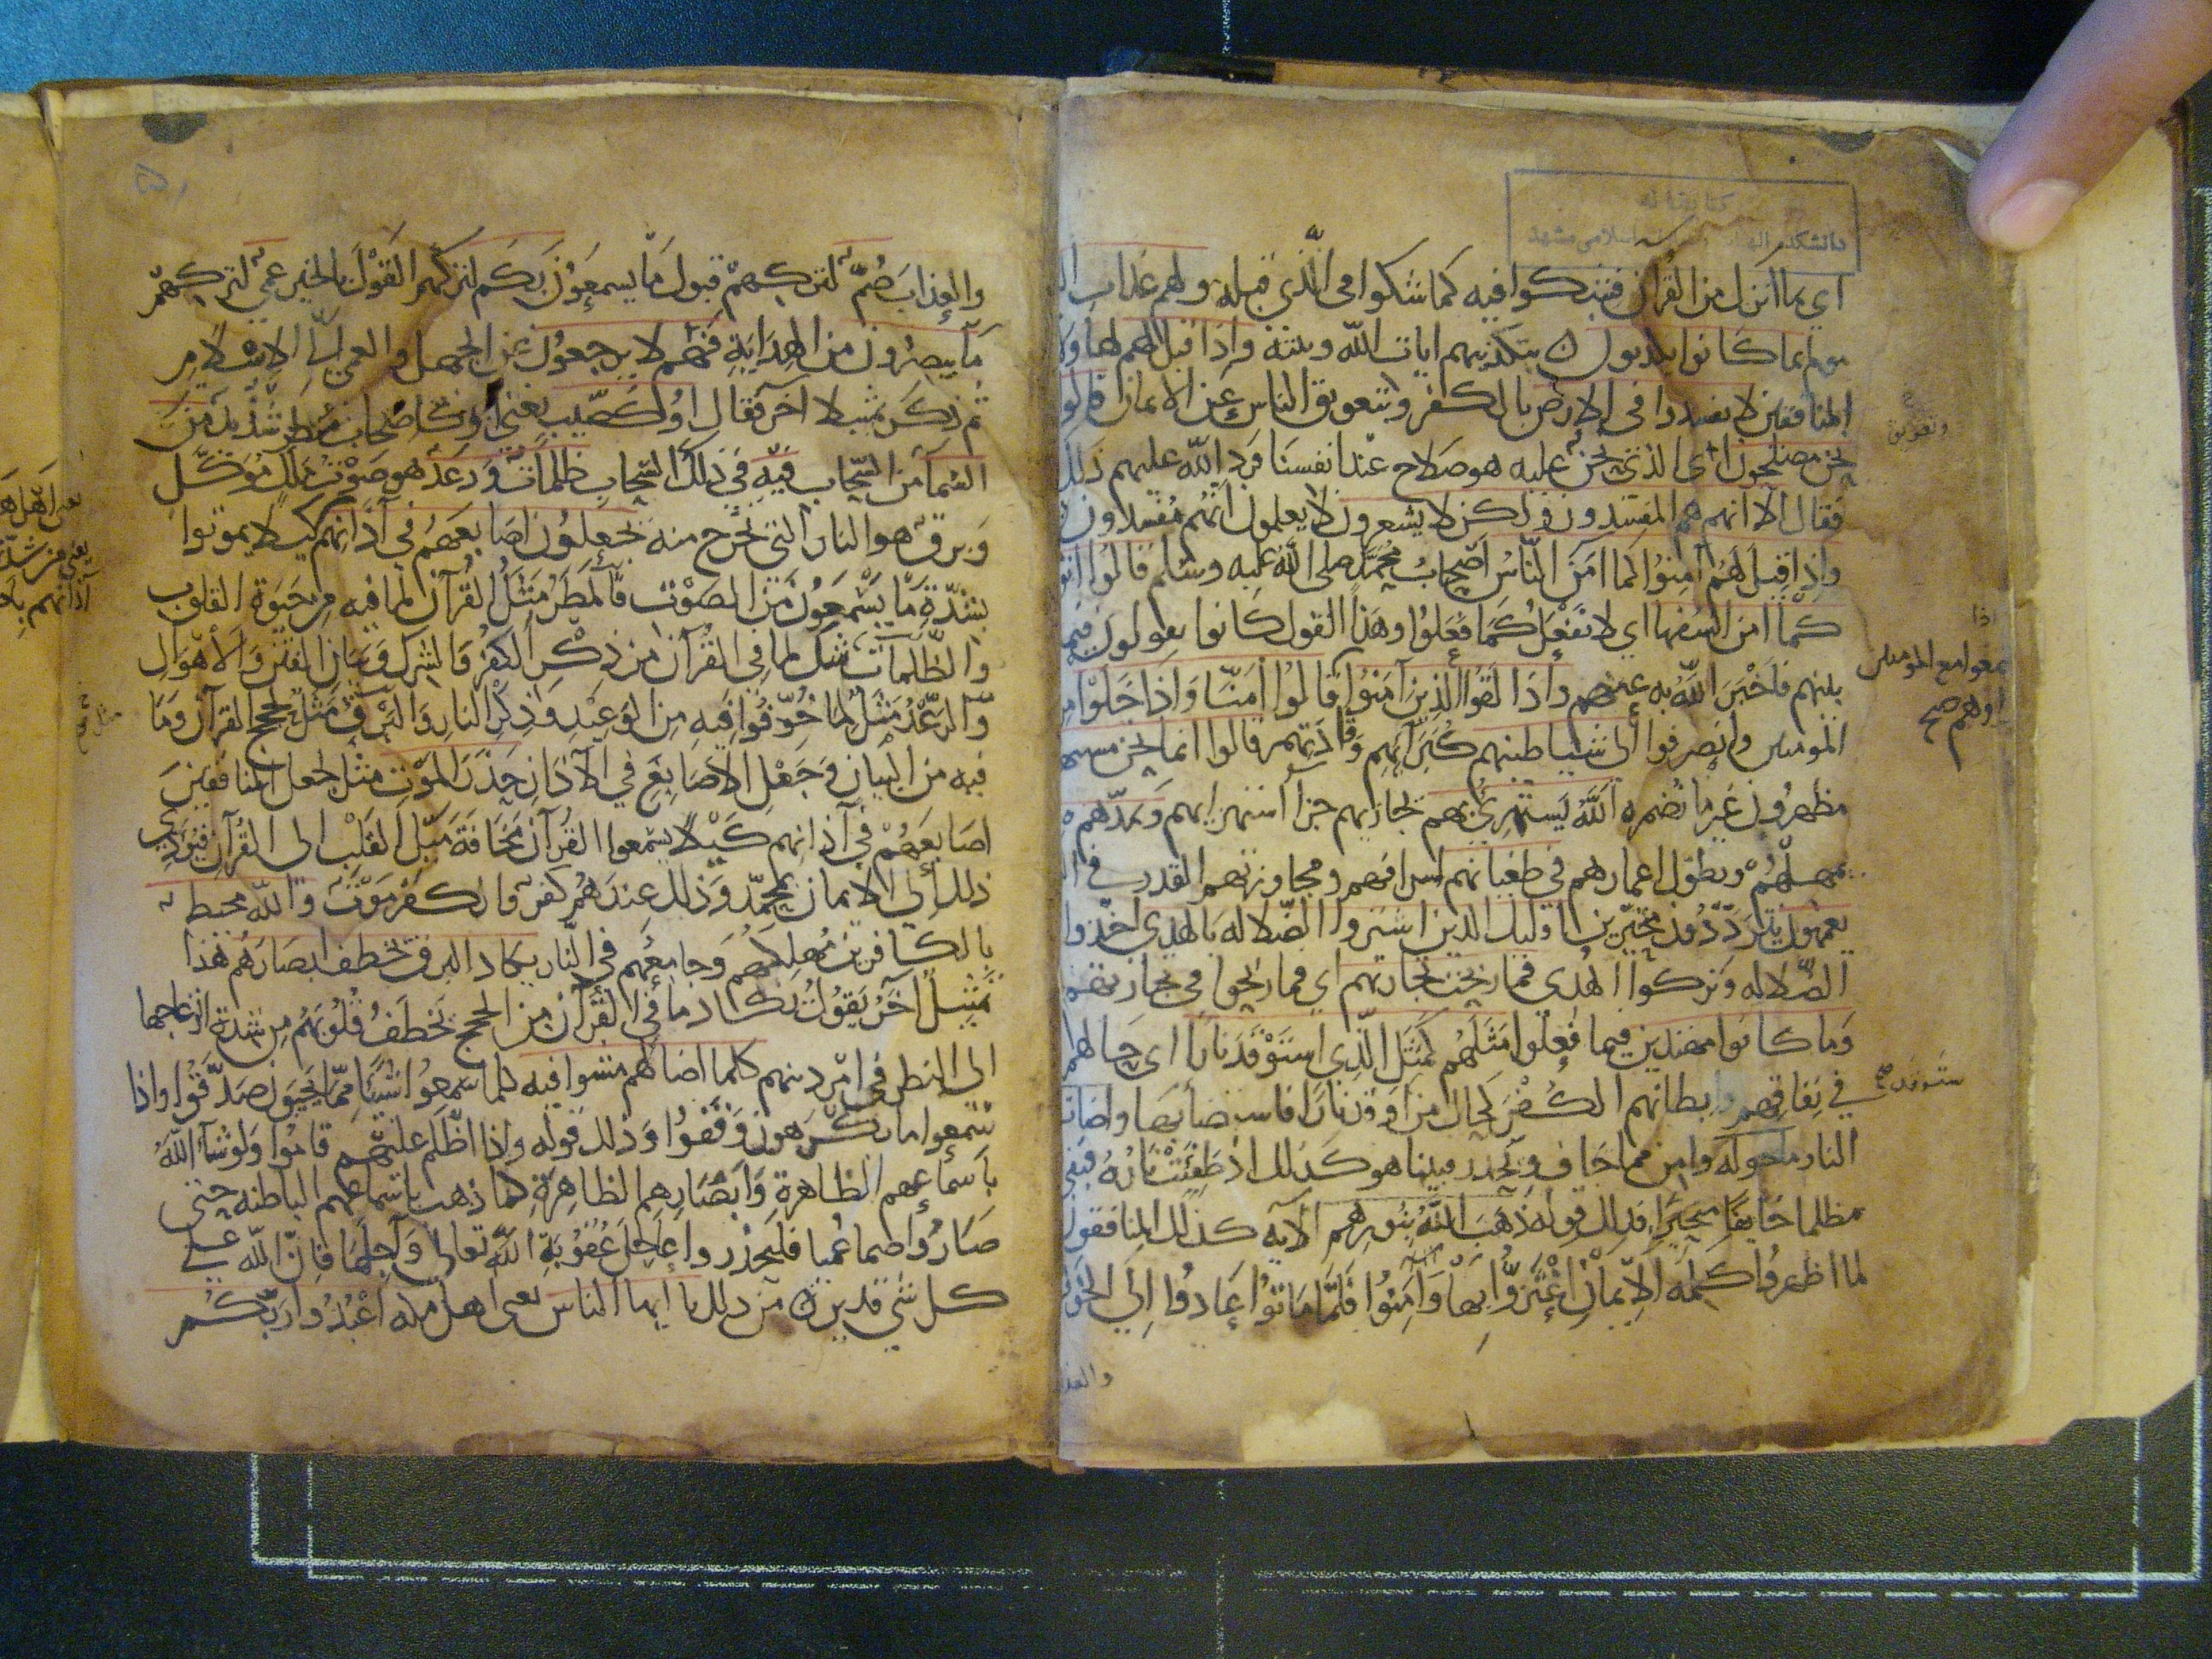 كتابخانه
دانشكده الهيات و معارف اسلامى مشهد
اي بما انزل من القرآن فشكوا فيه كما شكوا في الذي قبله ولهم عذاب
بما كانوا يكذبون بتكذيبهم ايات الله وبينته واذا قيل لهم
المنافقين لا تفسدوا في الارض بالكفر وبتعويق الناس عن الايمان قالوا
نحن مصلحون اى الذي نحن عليه هو صلاح عند انفسنا فرد الله عليهم ذلك
فقال الا انهم هم المفسدون ولكن لا يشعرون لا يعلمون انهم مفسدون
واذا قيل لهم آمنوا كما امن الناس اصحاب محمد صلى الله عليه وسلم قالوا
كما امن السفهاا اي لا نفعل كما فعلوا وهذا القول كانوا يقولون فيما
بينهم فاخبر الله به عنهم واذا لقوا الذين آمنوا قالوا امنا واذا خلوا من
المومنين وانصرفوا الى شياطينهم كبرآيهم وقادتهم قالوا انما نحن
مظهرون غير ما نضمره الله يستهزئ بهم يجازيهم جزآ استهزايهم ويمدهم
يمهلهم ويطول اعمارهم في طغيانهم اسرافهم ومجاوزتهم القدر في
يعمهون يترددون متحيرين اوليك الذين اشتروا الضلاله بالهدى اخذوا
الضلاله وتركوا الهدى فما ربحت تجارتهم اي فما ربحوا في تجارتهم
وما كانوا مهتدين فيما فعلوا مثلهم كمثل الذي استوقد نارا اى حالهم
في نفاقهم وابطانهم الكفر كحال من اوقد نارا فاستضا بها واضات
النار ما حوله وامن مما يخاف ويحذر فبينا هو كذلك اذ طفئت ناره فبقي
مظلما خايفا متحيرا فذلك قوله ذهب الله بنورهم الايه كذلك المنافقون
لما اظهروا كلمه الايمان اغتروا بها وآمنوا فلما ماتوا عادوا الى الخوف
والعذ
وتعويق
اذا
اجتمعوا مع المومنين
استوقد صح
والعذاب صم لتركهم قبول ما يسمعون بكم لتركهم القول بالخير عمي لتركهم
ما يبصرون من الهداية فهم لا يرجعون عن الجهل والعمى الى الاسلام
ثم ذكر تمثيلا آخر فقال او كصيب يعنى او كاصحاب مطر شديد من
السمآ من السحاب فيه في ذلك السحاب ظلمات ورعد هو صوت ملك موكل
وبرق هو النار التي تخرج منه يجعلون اصابعهم في آذانهم كيلا يموتوا
بشدة ما يسمعون من الصوت فالمطر مثل القرآن لما فيه من حيوة القلوب
والظلمات مثل لما في القرآن من ذكر الكفر والشرك وبيان الفتن والاهوال
والرعد مثل لما خوفوا فيه من الوعيد وذكر النار والبرق مثل لحجج القرآن وما
فيه من البيان وجعل الاصابع في الآذان حذر الموت مثل لجعل المنافقين
اصابعهم في آذانهم كيلا يسمعوا القرآن مخافة ميل القلب الى القرآن فيودي
ذلك الى الايمان بمحمد وذلك عندهم كفر والكفر موت والله محيط
بالكافرين مهلكهم وجامعهم في النار يكاد البرق يخطف ابصارهم هذا
تمثيل آخر يقول يكاد ما في القرآن من الحجج تخطف قلوبهم من شدة ازعاجها
الى النظر في امر دينهم كلما اضا لهم مشوا فيه كلما سمعوا شيئا مما يحبون صدقوا واذا
سمعوا ما يكرهون وقفوا وذلك قوله واذا اظلم عليهم قاموا ولو شآ الله
باسماعهم الظاهرة وابصارهم الظاهرة كما ذهب باسماعهم الباطنه حتى
صاروا صما عميا فليحذروا عاجل عقوبة الله تعالى وآجلها فان الله على
كل شي قدير من ذلك يا ايها الناس يعنى اهل مكه اعبدوا ربكم